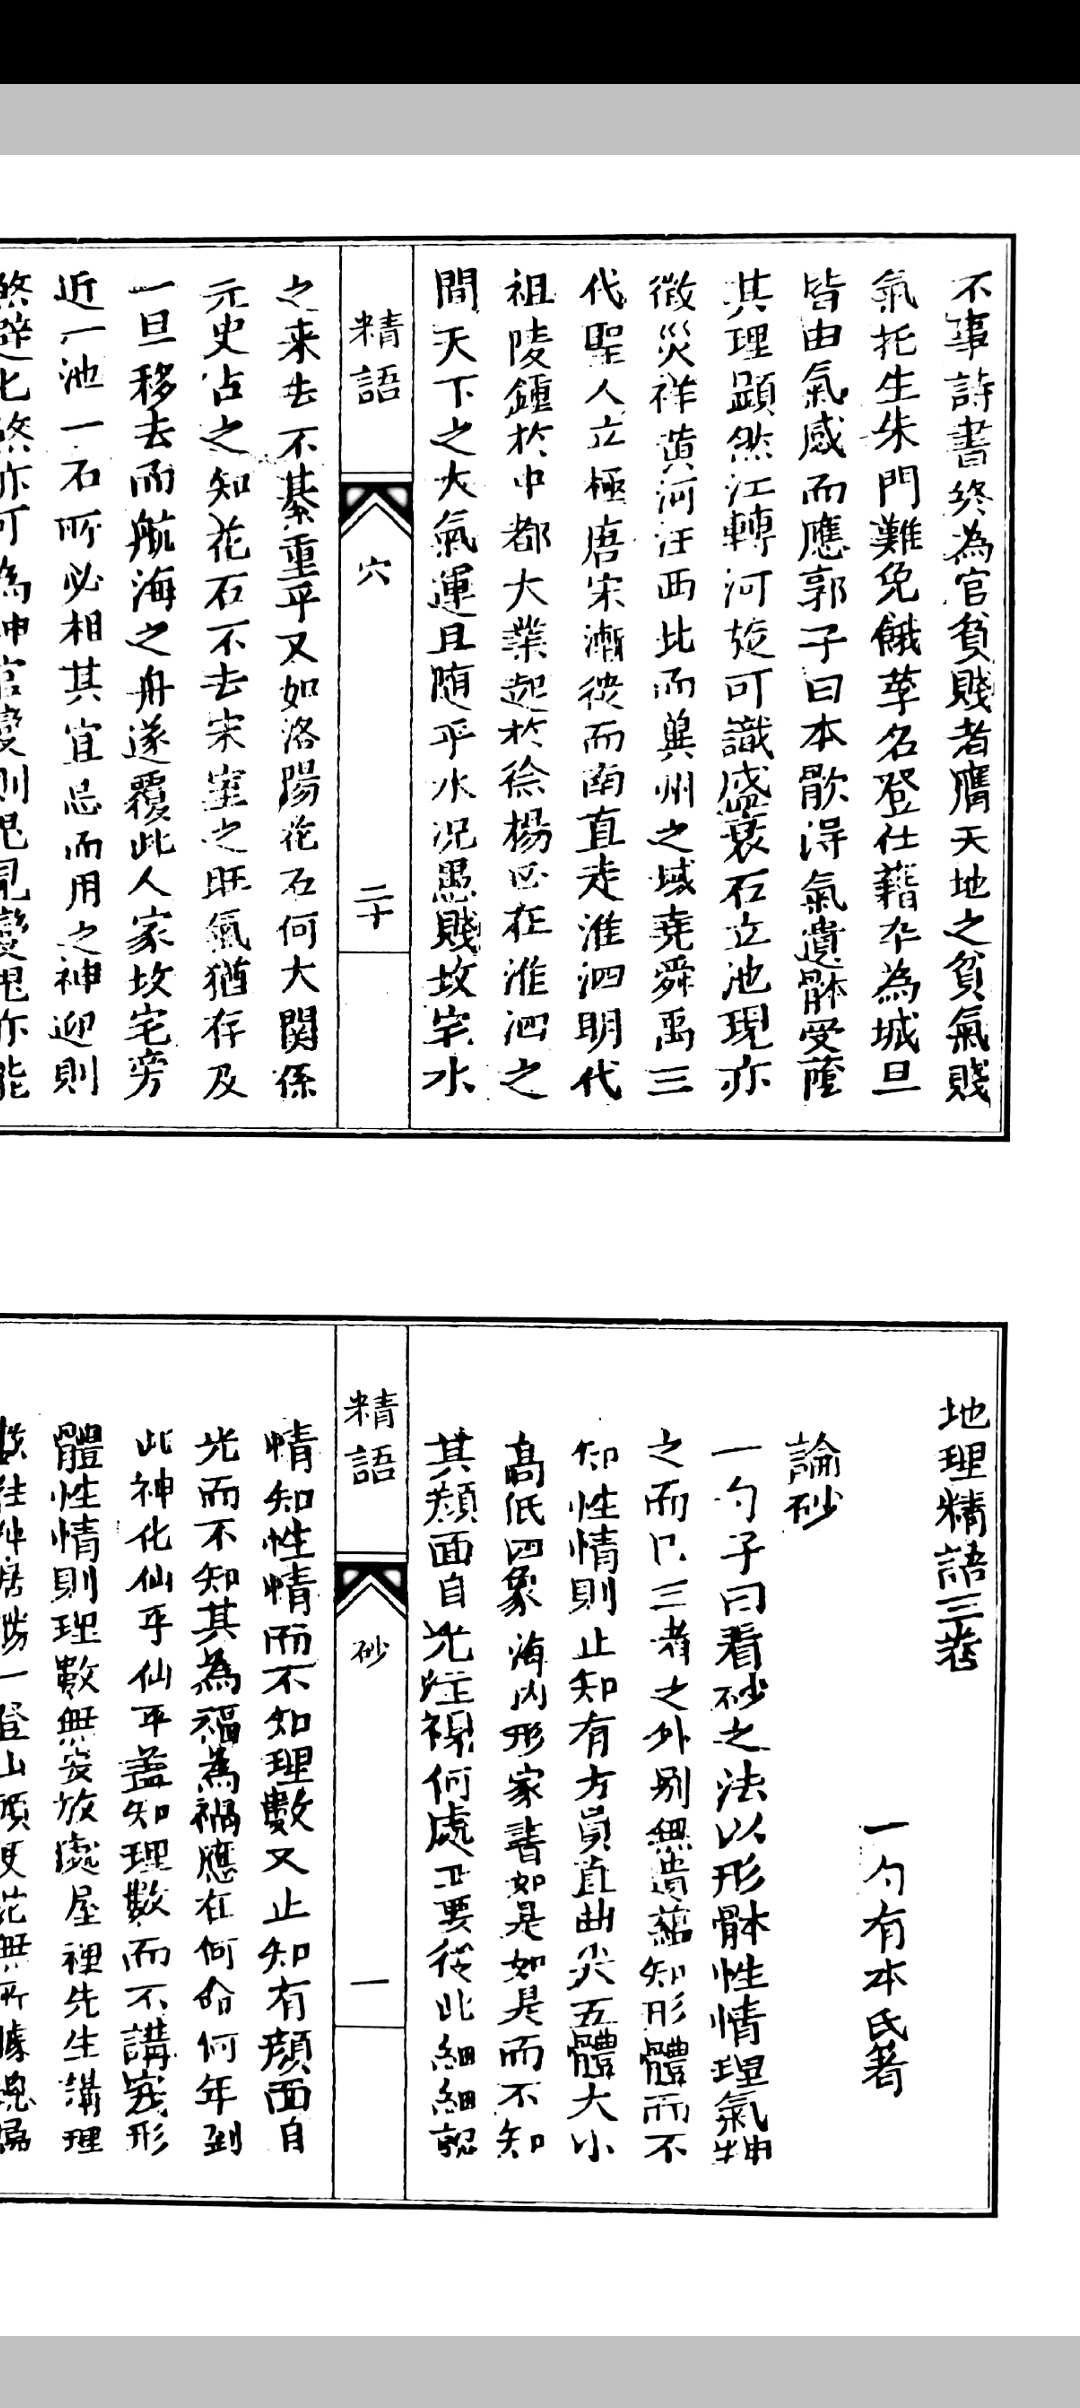 不事詩書終為官貧賤者膺天地之貧氣賤
氣托生朱門難免餓莩名登仕籍卒為城旦
皆由氣感而應郭子曰本骸得氣遺骵受蔭
其理顕然江轉河旋可識盛衰石立池現亦
徵災祥黄河汪西北而冀州之域堯舜禹三
代聖人立極唐宋漸徙而南直走淮泗明代
祖陵鍾於中都大業起於徐楊正在淮泗之
間天下之大氣運且随乎水况愚賤坟宅水
精語
穴
二十
之来去不綦重乎又如洛陽花石何大関係
元史占之知花石不去宋室之旺氣猶存及
一旦移去而航海之舟遂覆此人家坟宅旁
近一池一石所必相其宜忌而用之神迎則
煞避七煞亦可為神官變則鬼見變鬼亦能
地理精語三卷
一勺有本氏著
論砂
一勺子曰看砂之法以形骵性情理氣神
之而已三者之外别無遺蘊知形體而不
知性情則止知有方員直曲尖五體大小
高低四象海内形家書如是如是而不知
其顔面自光炷裸何處正要從此細細認
精語
砂
一
情知性情而不知理數又止知有顔面自
光而不知其為福為禍應在何命何年到
此神化仙乎仙乎盖知理數而不講究形
體性情則理數無安放處屋裡先生講理
一登山頂便花無所據